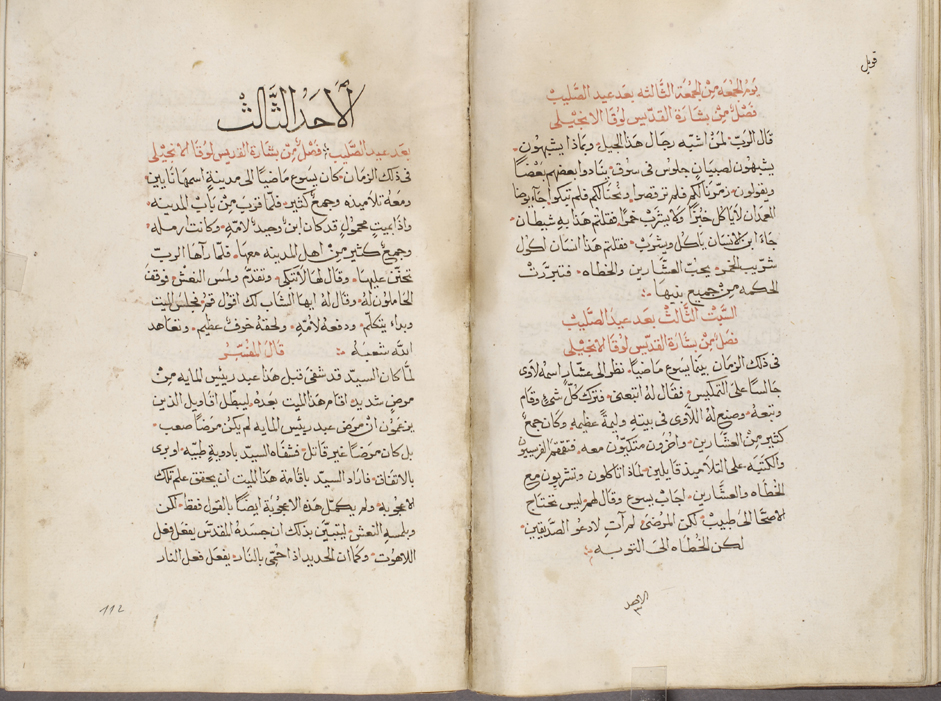 قوبل
يوم الجمعه من الجمعة الثالثه بعد عيد الصليب
فصل من بشارة القديس لوقا الانجيلى
قال الرب لمن اشبه رجال هذا الجيل وبماذا يشبهون
يشبهون لصبيان جلوس فى سوق ينادوا بعضهم بعضًا
ويقولون زمرنا لكم فلم ترقصوا ونحنا لكم فلم تبكوا جآ يوحنا
المعمدان لا ياكل خبزًا ولا يشرب خمرًا فقلتم هذا به شيطان
جاءَ ابن الانسان ياكل ويشرب فقلتم هذا انسان اكول
شريب الخمر يحب العشارين والخطاه فتبررت
الحكمه من جميع بنيها
السبت الثالث بعد عيد الصليب
فصل من بشارة القديس لوقا الانجيلى
فى ذلك الزمان بينما يسوع ماضيًا نظر الى عشار اسمه لاوى
جالسًا على التمكيس فقال له اتبعنى فترك كل شىء وقام
وتبعه وصنع له اللاوى فى بيته وليمة عظيمه وكان جمع
كثير من العشارين واخرون متكيون معه فتقمقم الفريسيون
والكتبه على التلاميذ قايلين لماذا تاكلون وتشربون مع
الخطاه والعشارين اجاب يسوع وقال لهم ليس تحتاج
الاصحآ الى طبيب لكن المرضى لم آت لادعو الصديقين
لكن الخطاه الى التوبه
الاحد
٣
الاحد الثالث
بعد عيد الصليب فصل من بشارة القديس لوقا الانجيلى
فى ذلك الزمان كان يسوع ماضيًا الى مدينة اسمها نايين
ومعه تلاميذه وجمع كثير فلما قرب من باب المدينه
واذا بميت محمول قد كان ابن وحيد لامه وكانت رمله
وجمع كثير من اهل المدينه معها فلما رآها الرب
تحنن عليها وقال لها لا تبكى وتقدم ولمس النعش فوقف
الحاملون له وقال له ايها الشاب لك اقول قم فجلس الميت
وبداء يتكلم ودفعه لامه ولحقهم خوف عظيم وتعاهد
الله شعبه قال المفسر
لما كان السيد قد شفى قبل هذا عبد رييس المايه من
مرض شديد اقام هذا الميت بعده ليبطل اقاويل الذين
يزعمون ان مرض عبد رييس المايه لم يكن مرضًا صعب
بل كان مرضًا غير قاتل فشفاه السيد بادوية طبيه او برى
بالاتفاق فاراد السيد باقامة هذا الميت ان يحقق علم تلك
الاعجوبه ولم يكمل هذه الاعجوبة ايضًا بالقول فقط لكن
وبلمسه النعش ليتبين بذلك ان جسده المقدس يفعل فعل
اللاهوت وكما ان الحديد اذا احمى بالنار يفعل فعل النار
112